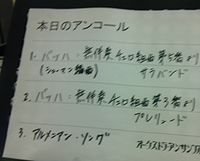 本日のアンコール
1. バッハ:無伴奏チェロ組曲第5番より
サラバンド
2. バッハ:無伴奏チェロ組曲第3番より
プレリュード
3. アルメニアン・ソング
オーケストラアンサンブ